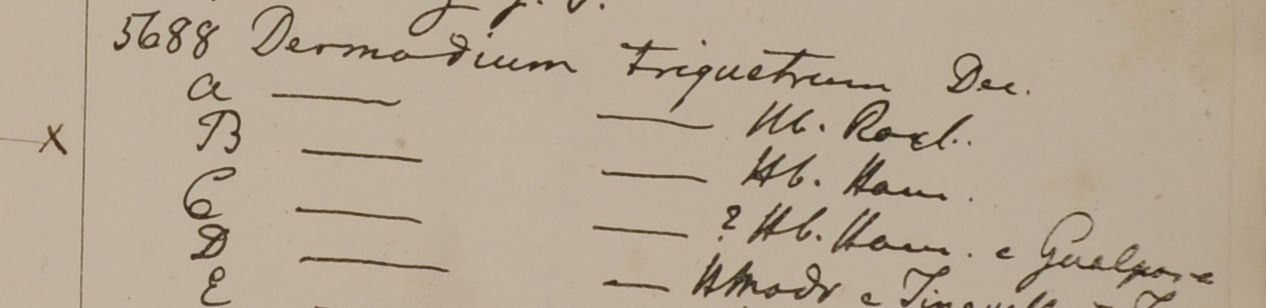 5688 Desmodium triquetrum Dec.
A — — Hb. Roxb.
B — — Hb. Ham.
C — — ? Hb. Ham. e Gualpara
D — — HMadr e
E